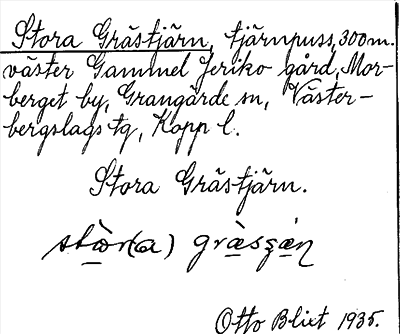 Stora Grästjärn, tjärnpuss, 300 m.
väster Gammel Jeriko gård, Mor-
berget by, Grangärde sn, Väster-
bergslags tg, Kopp l.
Stora Grästjärn.
stòr(a) gràsʂæ̀ɳ
Otto Blixt 1935.